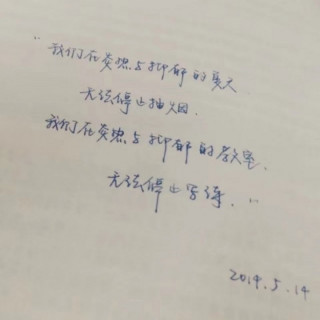 “我们在炎热与抑郁的夏天
无法停止抽烟.
我们在炎热与抑郁的教室.
无法停止写诗.”
2014.5.14